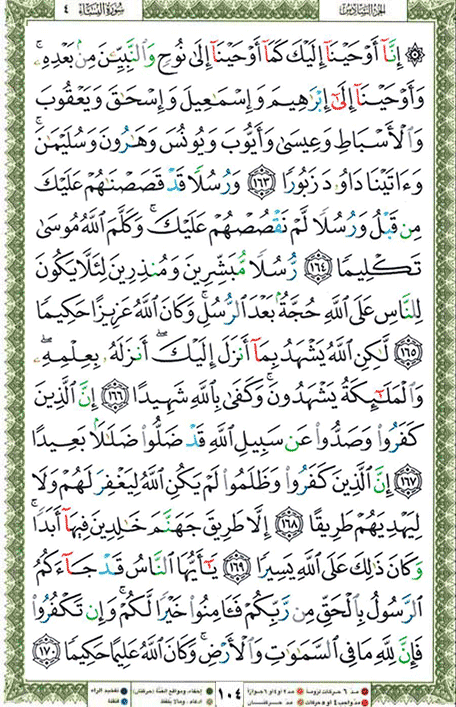 الجزء السادس سورة النساء ٤
۞ إِنَّآ أَوْحَيْنَآ إِلَيْكَ كَمَآ أَوْحَيْنَآ إِلَىٰ نُوحٍ وَٱلنَّبِيِّـۧنَ مِنۢ بَعْدِهِۦ ۚ
وَأَوْحَيْنَآ إِلَىٰٓ إِبْرَٰهِيمَ وَإِسْمَٰعِيلَ وَإِسْحَٰقَ وَيَعْقُوبَ
وَٱلْأَسْبَاطِ وَعِيسَىٰ وَأَيُّوبَ وَيُونُسَ وَهَٰرُونَ وَسُلَيْمَٰنَ ۚ
وَءَاتَيْنَا دَاوُۥدَ زَبُورًا ١٦٣ وَرُسُلًا قَدْ قَصَصْنَٰهُمْ عَلَيْكَ
مِن قَبْلُ وَرُسُلًا لَّمْ نَقْصُصْهُمْ عَلَيْكَ ۚ وَكَلَّمَ ٱللَّهُ مُوسَىٰ
تَكْلِيمًا ١٦٤ رُّسُلًا مُّبَشِّرِينَ وَمُنذِرِينَ لِئَلَّا يَكُونَ
لِلنَّاسِ عَلَى ٱللَّهِ حُجَّةٌۢ بَعْدَ ٱلرُّسُلِ ۚ وَكَانَ ٱللَّهُ عَزِيزًا حَكِيمًا
١٦٥ لَّٰكِنِ ٱللَّهُ يَشْهَدُ بِمَآ أَنزَلَ إِلَيْكَ ۖ أَنزَلَهُۥ بِعِلْمِهِۦ ۖ
وَٱلْمَلَٰٓئِكَةُ يَشْهَدُونَ ۚ وَكَفَىٰ بِٱللَّهِ شَهِيدًا ١٦٦ إِنَّ ٱلَّذِينَ
كَفَرُوا۟ وَصَدُّوا۟ عَن سَبِيلِ ٱللَّهِ قَدْ ضَلُّوا۟ ضَلَٰلًۢا بَعِيدًا
١٦٧ إِنَّ ٱلَّذِينَ كَفَرُوا۟ وَظَلَمُوا۟ لَمْ يَكُنِ ٱللَّهُ لِيَغْفِرَ لَهُمْ وَلَا
لِيَهْدِيَهُمْ طَرِيقًا ١٦٨ إِلَّا طَرِيقَ جَهَنَّمَ خَٰلِدِينَ فِيهَآ أَبَدًا ۚ
وَكَانَ ذَٰلِكَ عَلَى ٱللَّهِ يَسِيرًا ١٦٩ يَٰٓأَيُّهَا ٱلنَّاسُ قَدْ جَآءَكُمُ
ٱلرَّسُولُ بِٱلْحَقِّ مِن رَّبِّكُمْ فَـَٔامِنُوا۟ خَيْرًا لَّكُمْ ۚ وَإِن تَكْفُرُوا۟
فَإِنَّ لِلَّهِ مَا فِى ٱلسَّمَٰوَٰتِ وَٱلْأَرْضِ ۚ وَكَانَ ٱللَّهُ عَلِيمًا حَكِيمًا ١٧٠
مد ٦ حركات لزوما مد ٢ او ٤ او ٦ جوازا ١٠٤ إخفاء، ومواقع الغنة (حركتان) تفخيم الراء
مد واجب ٤ او ٥ حركات مد حركتان إدغام، وما لا يلفظ قلقلة